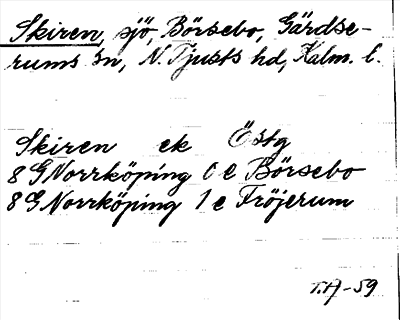 Skiren, sjö, Börsebo, Gärdse-
rums sn, N. Tjusts hd, Kalm. l.
Skiren ek Östg
8G Norrköping 0 e Börsebo
8G Norrköping 1 e Fröjerum
T.A-59